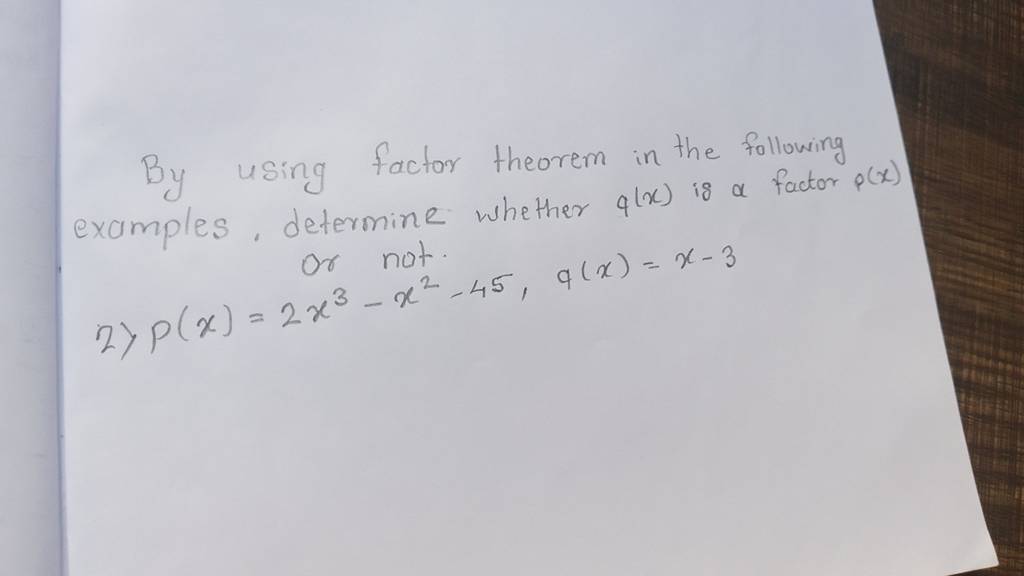 By using factor theorem in the following
examples, determine whether q(x) is a factor p(x)
or not.
2) p(x) = 2x³ - x² - 45, q(x) = x - 3